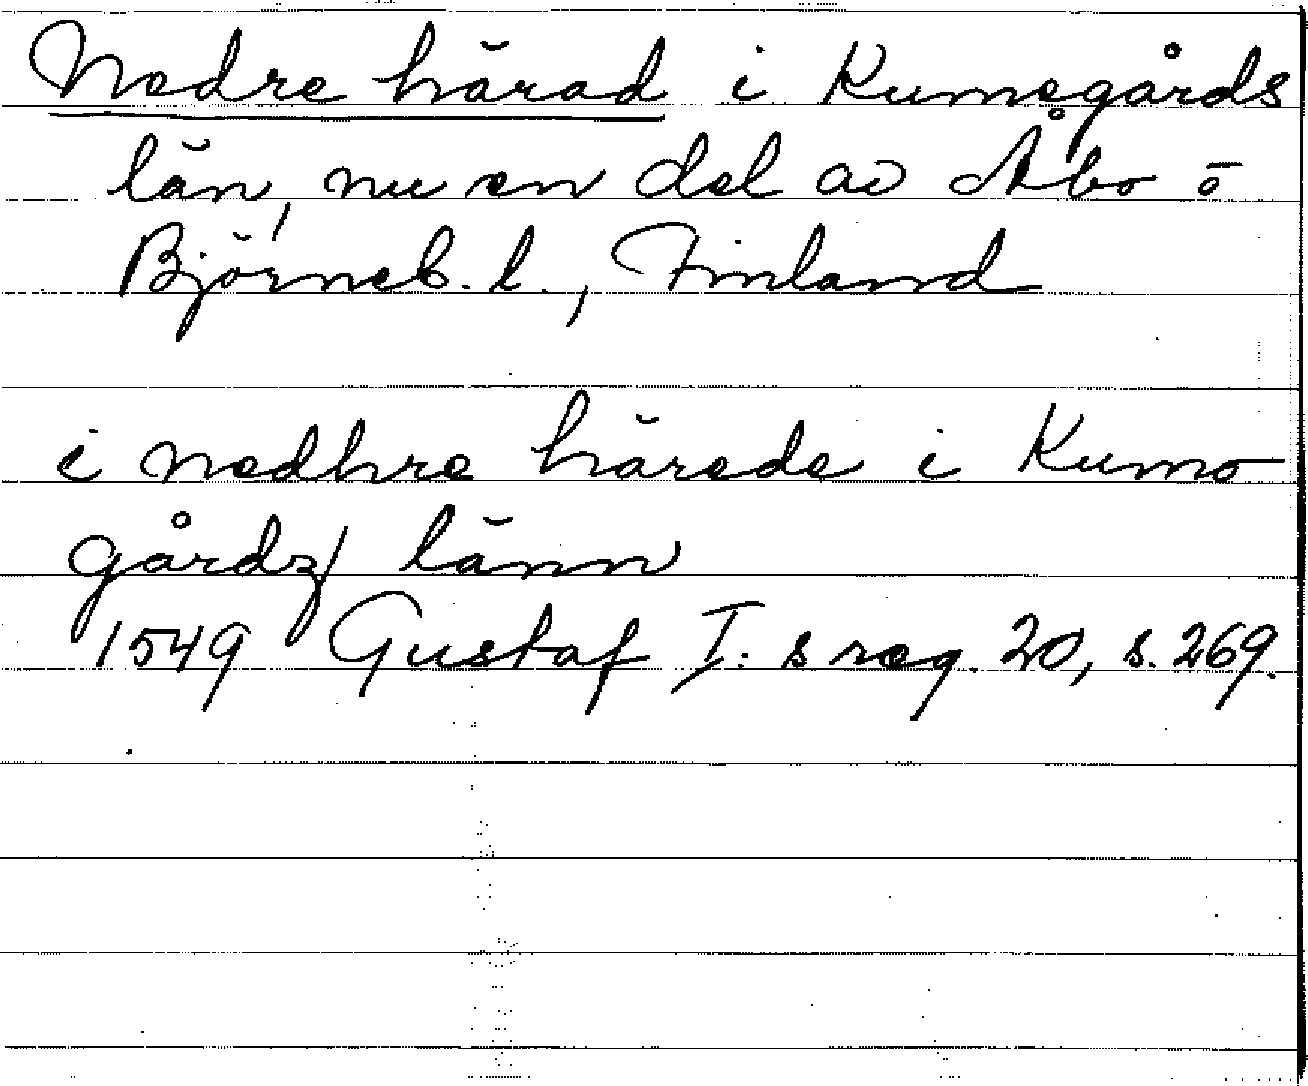 Nedre härad i Kumogårds
län, nu en del av Åbo o
Björneb. l., Finland
i nedhre härede i Kumo
gårdz länn
1549 Gustaf I:s reg. 20, s. 269.